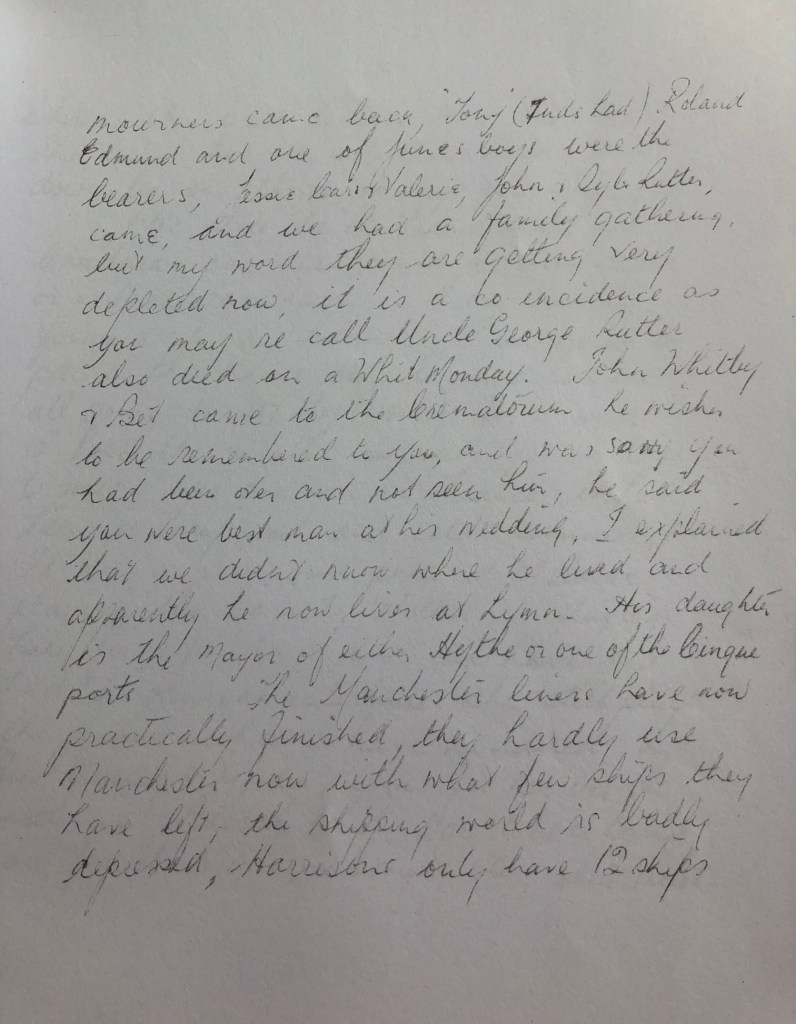 mourners came back, "Tony" (Juds lad) Roland
Edmund and one of June's boys were the
bearers, Essie & Valerie, John & Rutter,
came, and we had a family gathering,
but my word they are getting very
depleted now, it is a co incidence as
you may re call Uncle George Rutter
also died on a Whit Monday. John Whitby
& Bet came to the Crematorium he wishes
to be remembered to you, and was sorry you
had been over and not seen him, he said
you were best man at his wedding, I explained
that we didn't know where he lived and
apparently he now lives at Lymm. His daughter
is the Mayor of either Hythe or one of the Cinque
ports The Manchester liners have now
practically finished, they hardly use
Manchester now with what few ships they
have left, the shipping world is badly
depressed, Harrisons only have 12 ships